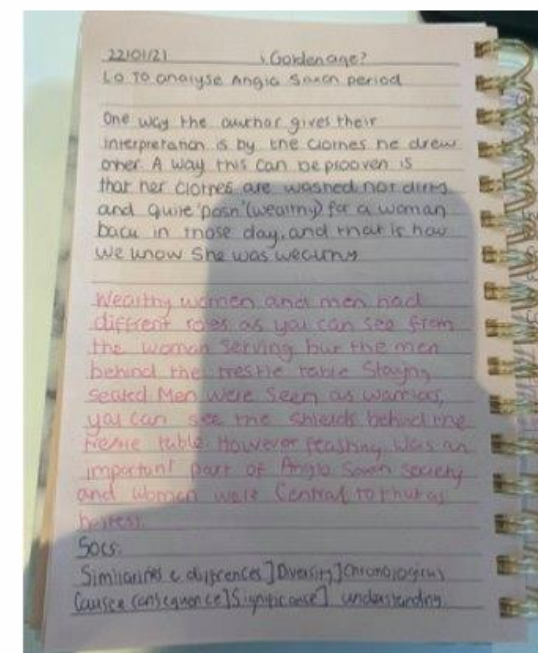 22/01/21 Golden age?
LO To analyse Anglo Saxon period
One way the author gives their
interpretation is by the clothes he drew
other. A way this can be prooven is
that her clothes are washed not dirty
and quite 'posh' (wealthy) for a woman
back in those day, and that is how
we know She was wealthy
Wealthy women and men had
diffrent roles as you can see from
the woman serving but the men
behind the trestle table Staying
seated Men were seen as warriors,
you can see the shields behind the
trestle table. However feasting was an
important part of Anglo Saxon society
and women were Central to that as
Socs:
Similarities & diffrences] Diversity] Chronological
Cause & consequence] Significance] understanding